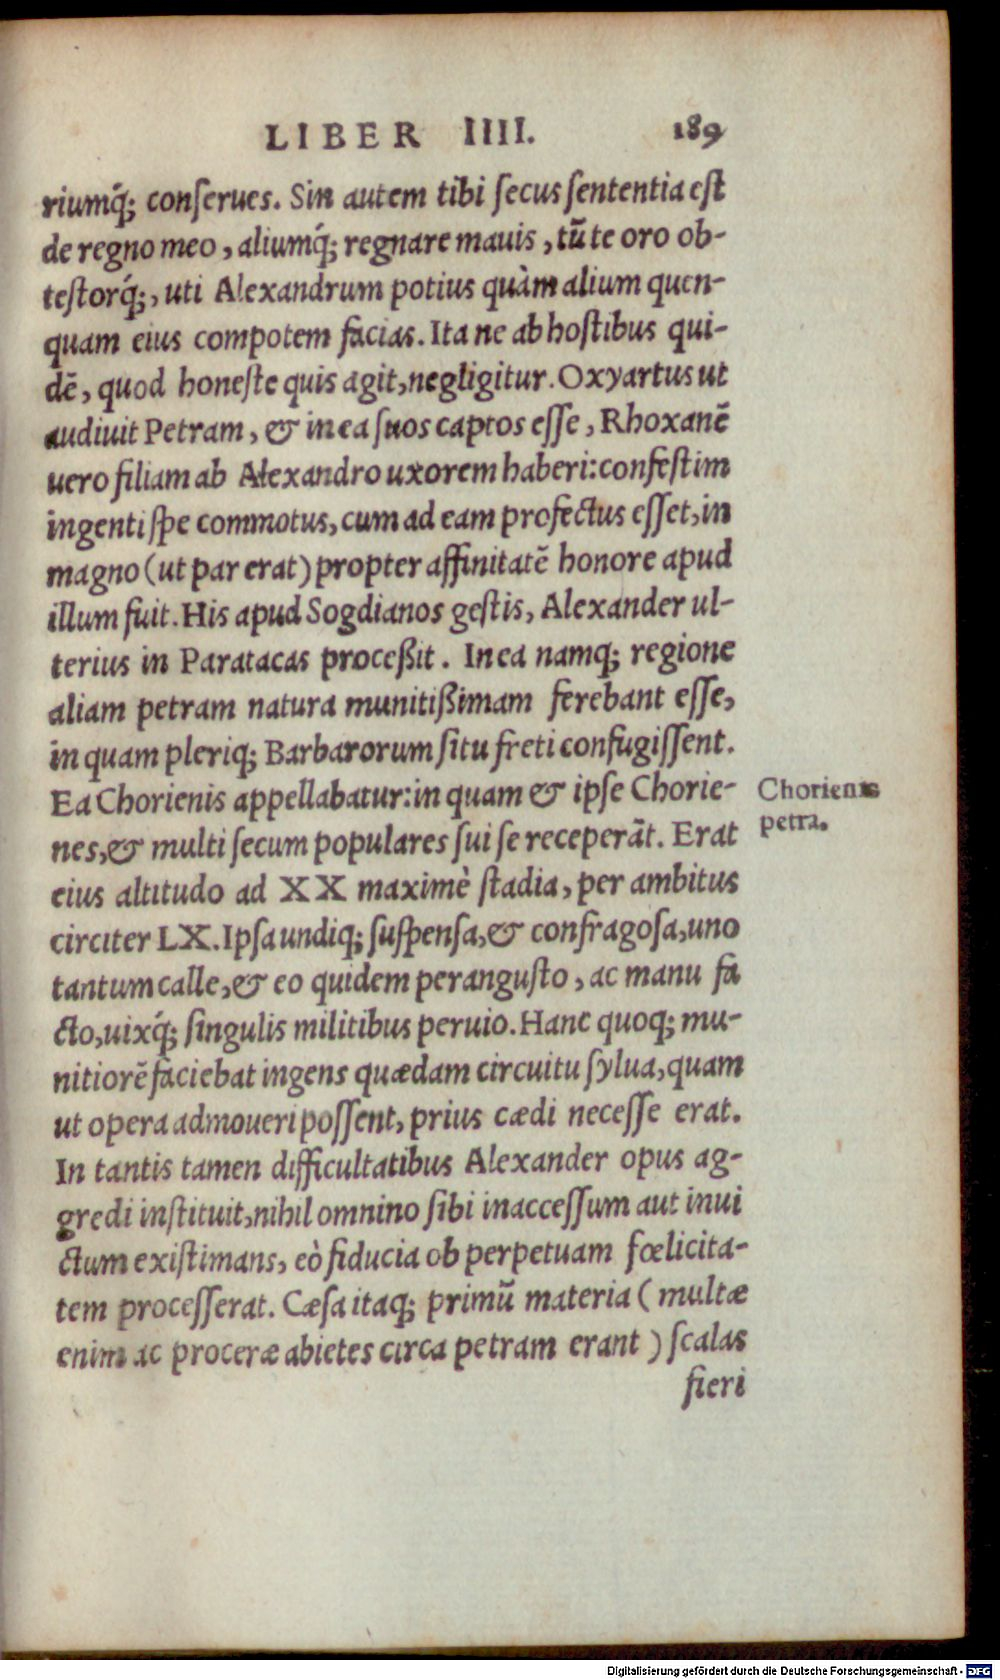 LIBER IIII. 189
riumq́; conſerues. Sin autem tibi ſecus ſententia eſt
de regno meo, aliumq́; regnare mauis, tū te oro ob-
teſtorq́;, uti Alexandrum potius quàm alium quen-
quam eius compotem facias. Ita ne ab hoſtibus qui-
dē, quod honeſte quis agit, negligitur. Oxyartus ut
audiuit Petram, & in ea ſuos captos eſſe, Rhoxanē
uero filiam ab Alexandro uxorem haberi: confeſtim
ingenti ſpe commotus, cum ad eam profectus eſſet, in
magno (ut par erat) propter affinitatē honore apud
illum fuit. His apud Sogdianos geſtis, Alexander ul-
terius in Paratacas proceßit. In ea namq; regione
aliam petram natura munitißimam ferebant eſſe,
in quam pleriq; Barbarorum ſitu freti confugiſſent.
Ea Chorienis appellabatur: in quam & ipſe Chorie-
nes, & multi ſecum populares ſui ſe receperāt. Erat
Chorienis
petra.
eius altitudo ad XX maximè ſtadia, per ambitus
circiter LX. Ipſa undiq; ſuſpenſa, & confragoſa, uno
tantum calle, & eo quidem perangusto, ac manu fa
cto, uixq́; ſingulis militibus peruio. Hanc quoq; mu-
nitiorē faciebat ingens quædam circuitu ſylua, quam
ut opera admoueri poſſent, prius cædi neceſſe erat.
In tantis tamen difficultatibus Alexander opus ag-
gredi inſtituit, nihil omnino ſibi inacceſſum aut inui
ctum exiſtimans, eò fiducia ob perpetuam fœlicita-
tem proceſſerat. Cæſa itaq; primū materia (multæ
enim ac proceræ abietes circa petram erant) ſcalas
fieri
Digitalisierung gefördert durch die Deutsche Forschungsgemeinschaft - DFG